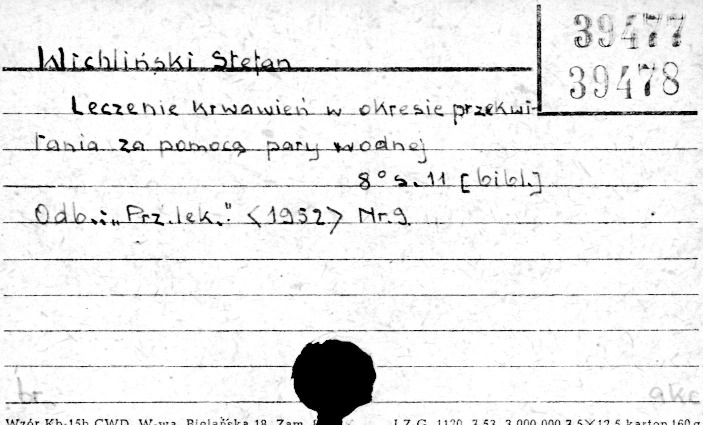 39477
39478
Wichliński Stefan
Leczenie krwawień w okresie przekwi-
tania za pomocą pary wodnej
8° s. 11 [bibl.]
Odb.: „Prz. lek." <1952> Nr. 9.
br. akc
Wzór Kb-15b CWD, W-wa, Bielańska 18, Zam. I.Z.G. 1120 3.53 3.000.000 7,5×12,5 karton 160 g